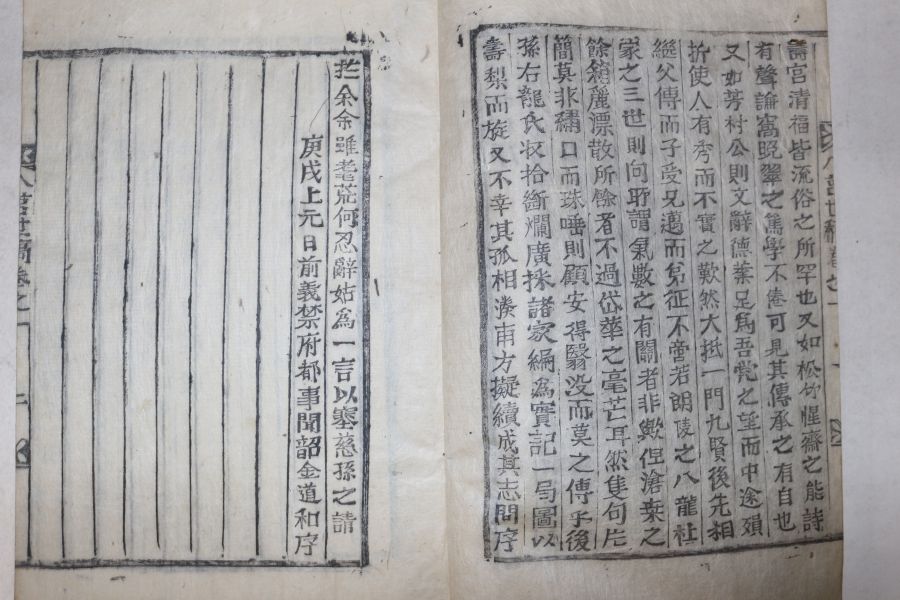 壽宫清福皆流俗之所罕也又如松竹惺齋之能詩
有聲論窩晩翠之篤學不倦可見其傳承之有自也
又如芳村公則文辭德業足爲吾党之望而中途殞
折使人有秀而不實之歎然大抵一門九賢後先相
繼父傳而子受兄邁而弟征不啻若朗陵之八龍杜
家之三世則向所謂氣數之有關者非歟俚滄桒之
餘龍麗漂散所餘者不過岱華之毫芒耳然隻句片
簡莫非繡口而珠唾則顧安得翳没而莫之傳乎後
孫右龍氏収拾衙爛廣採諸家編爲實記一局圖以
壽梨而旋又不幸其孤相湊甫方擬續成其志問序
扵余余雖耄荒何忍辭姑爲一言以塞慈孫之請
庚戌上元日前義禁府都事聞韶金道和序
八 世稿卷之一